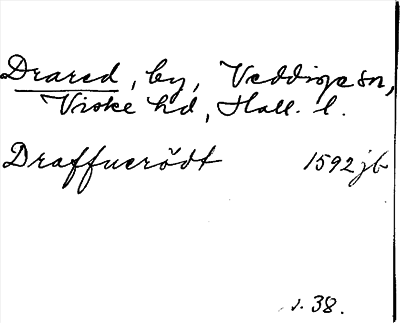 Drared, by, Veddige sn,
Viske hd, Hall. l.
Draffuerödt 1592 jb
s. 38.